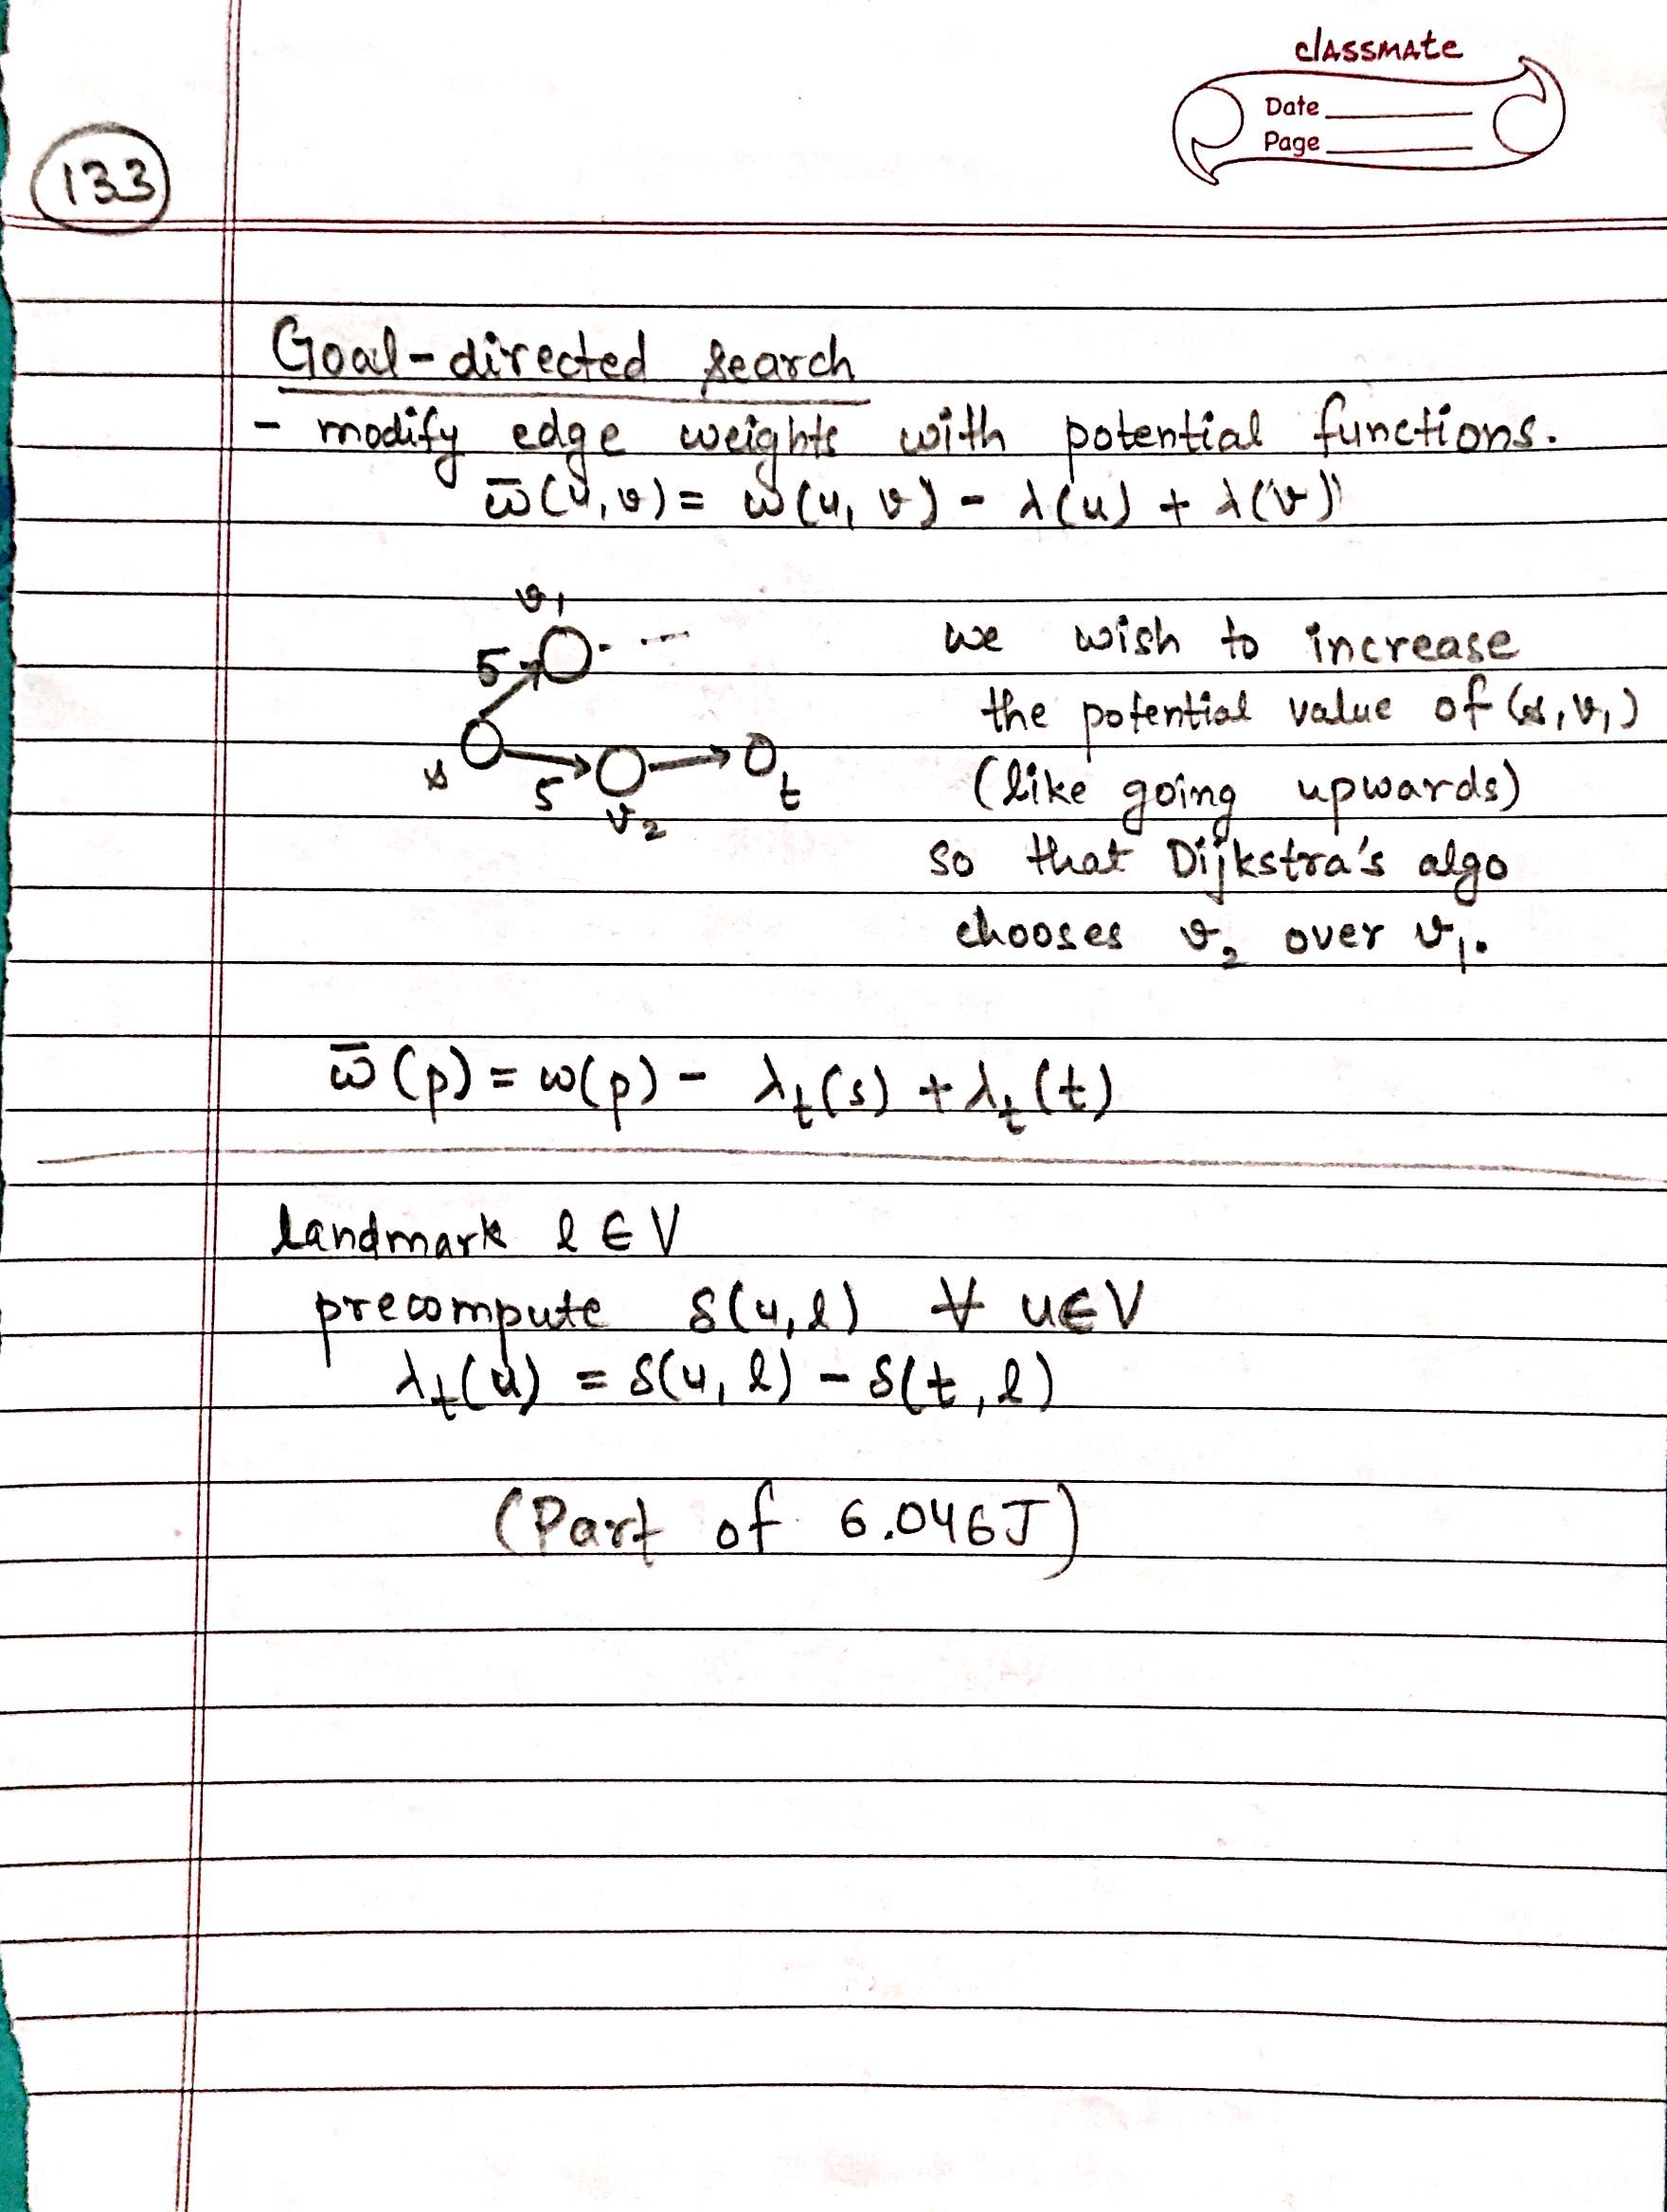 classmate
Date
Page
133
Goal-directed search
- modify edge weights with potential functions.
w̅(u,v) = w(u,v) - λ(u) + λ(v)
v₁
5
s
5
v₂
t
we wish to increase
the potential value of (s,v₁)
(like going upwards)
so that Dijkstra's algo
chooses v₂ over v₁.
w̅(p) = w(p) - λₜ(s) + λₜ(t)
landmark l ∈ V
precompute δ(u,l) ∀ u∈V
λₜ(u) = δ(u,l) - δ(t,l)
(Part of 6.046J)